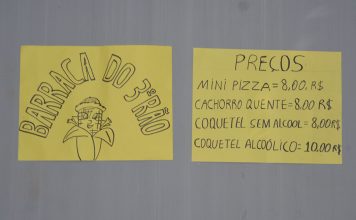 BARRACA DO 3ºRÃO
PREÇOS
MINI PIZZA=8,00 R$
CACHORRO QUENTE=8,00 R$
COQUETEL SEM ALCOOL=8,00R$
COQUETEL ALCOÓLICO=10,00R$